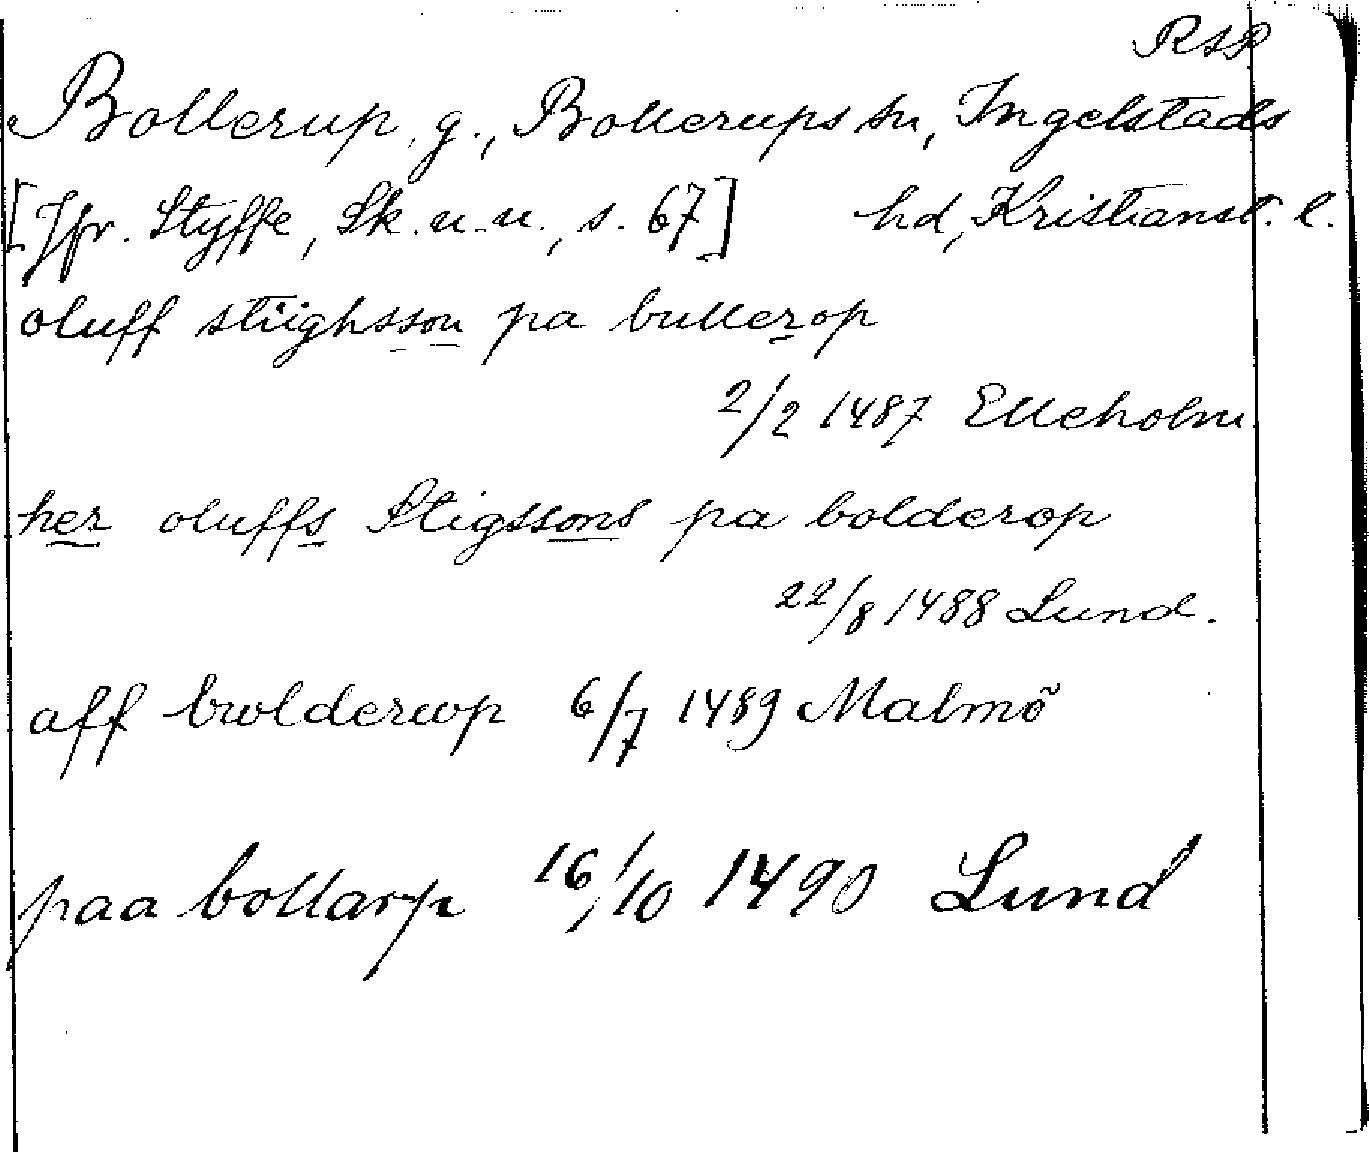 RSP
Bollerup, g., Bollerups sn, Ingelstads
[Jfr. Styffe, Sk. u. u., s. 67] hd, Kristianst. l.
oluff stiighsson pa bullerop
2/2 1487 Elleholm
her oluffs Stigssons pa bolderop
22/8 1488 Lund.
aff bwolderwp 6/7 1489 Malmö
paa bollarp 16/10 1490 Lund